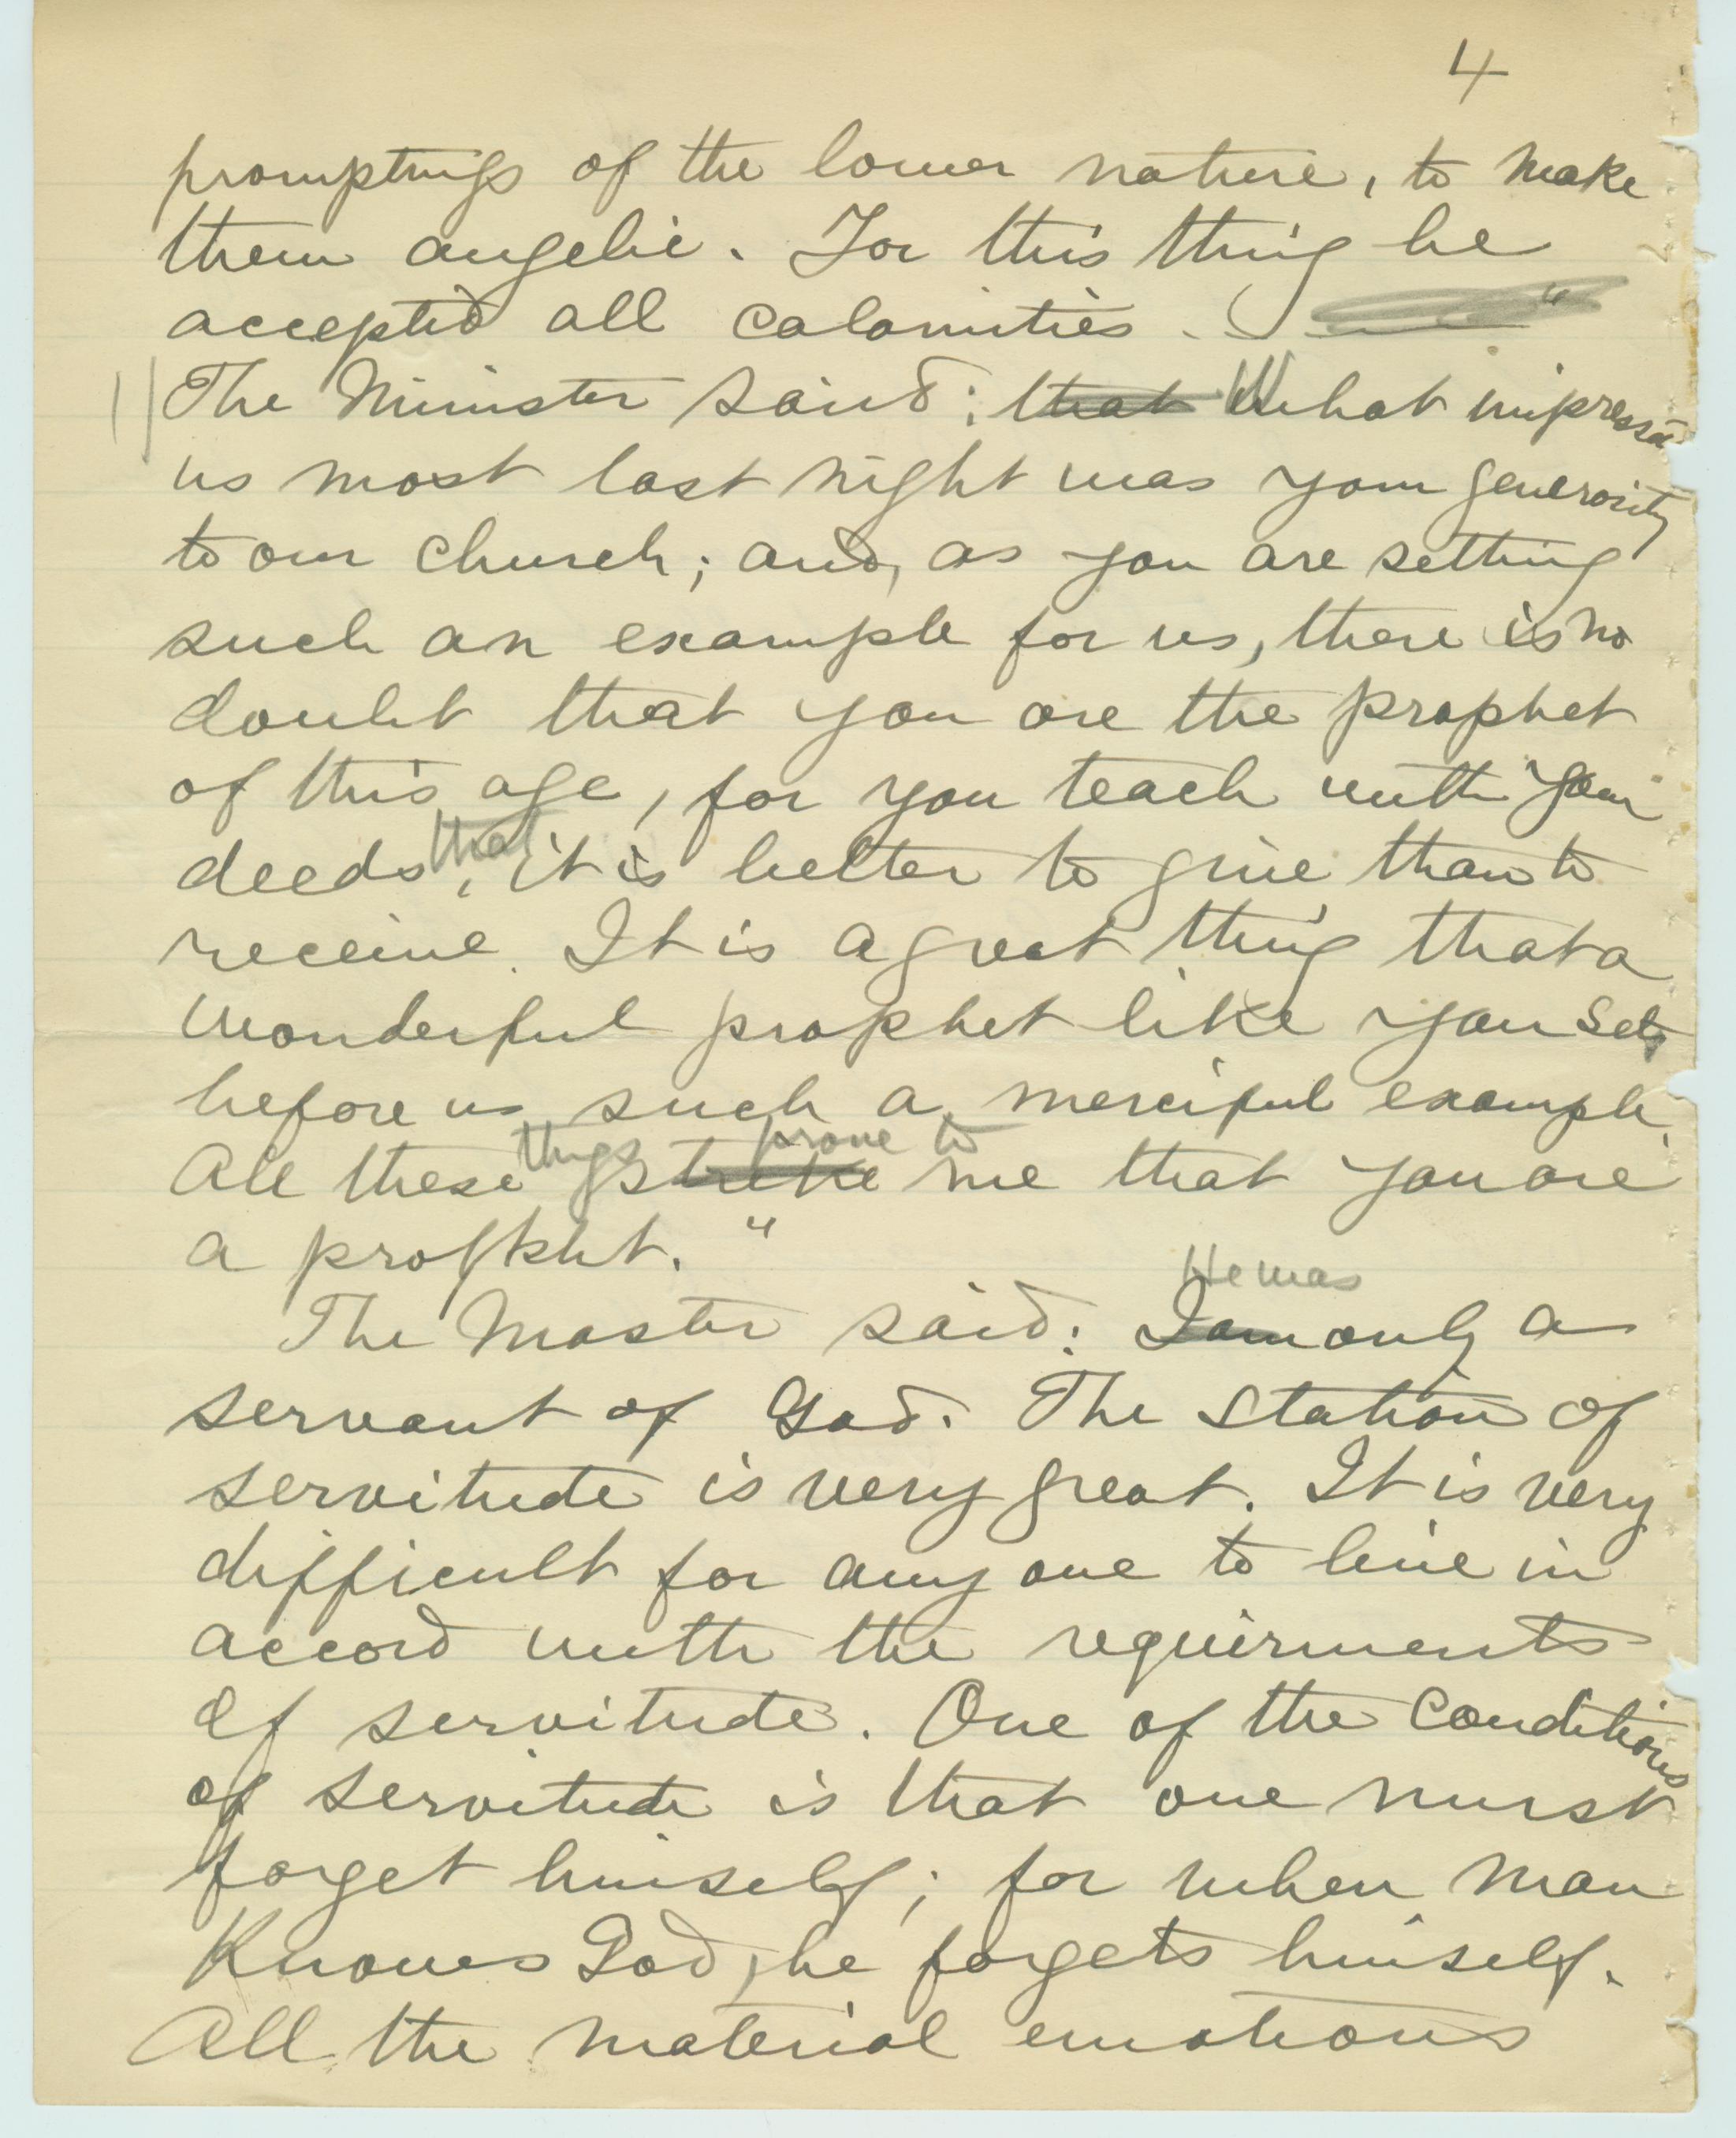 4
promptings of the lower nature, to make
them angelic. For this thing he
accepted all calamities. "
The Minister said: that What impressed
us most last night was your generosity
to our church; and, as you are setting
such an example for us, there is no
doubt that you are the prophet
of this age, for you teach with your
deeds, that it is better to give than to
receive. It is a great thing that a
wonderful prophet like you sets
before us such a merciful example.
things prove to
All these strike me that you are
a prophet. "
He was
The Master said: I am only a
servant of God. The station of
servitude is very great. It is very
difficult for any one to live in
accord with the requirments
of servitude. One of the conditions
of servitude is that one must
forget himself; for when man
Knows God, he forgets himself.
All the material emotions